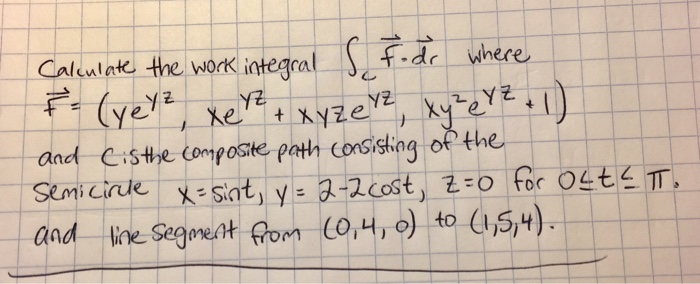 Calculate the work integral ∫_C F⃗·dr⃗ where
F⃗ = (ye^{yz}, xe^{yz} + xyze^{yz}, xy²e^{yz} + 1)
and C is the composite path consisting of the
semicircle x = sint, y = 2-2cost, z=0 for 0≤t≤π.
and line segment from (0,4,0) to (1,5,4).